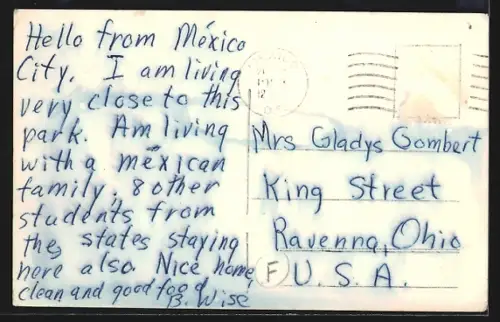 Hello from México
City. I am living
very close to this
park. Am living
with a méxican
family, 8 other
students from
the states staying
here also. Nice home,
clean and good food
B. Wise
Mrs Gladys Gombert
King Street
Ravenna, Ohio
U.S.A.
F